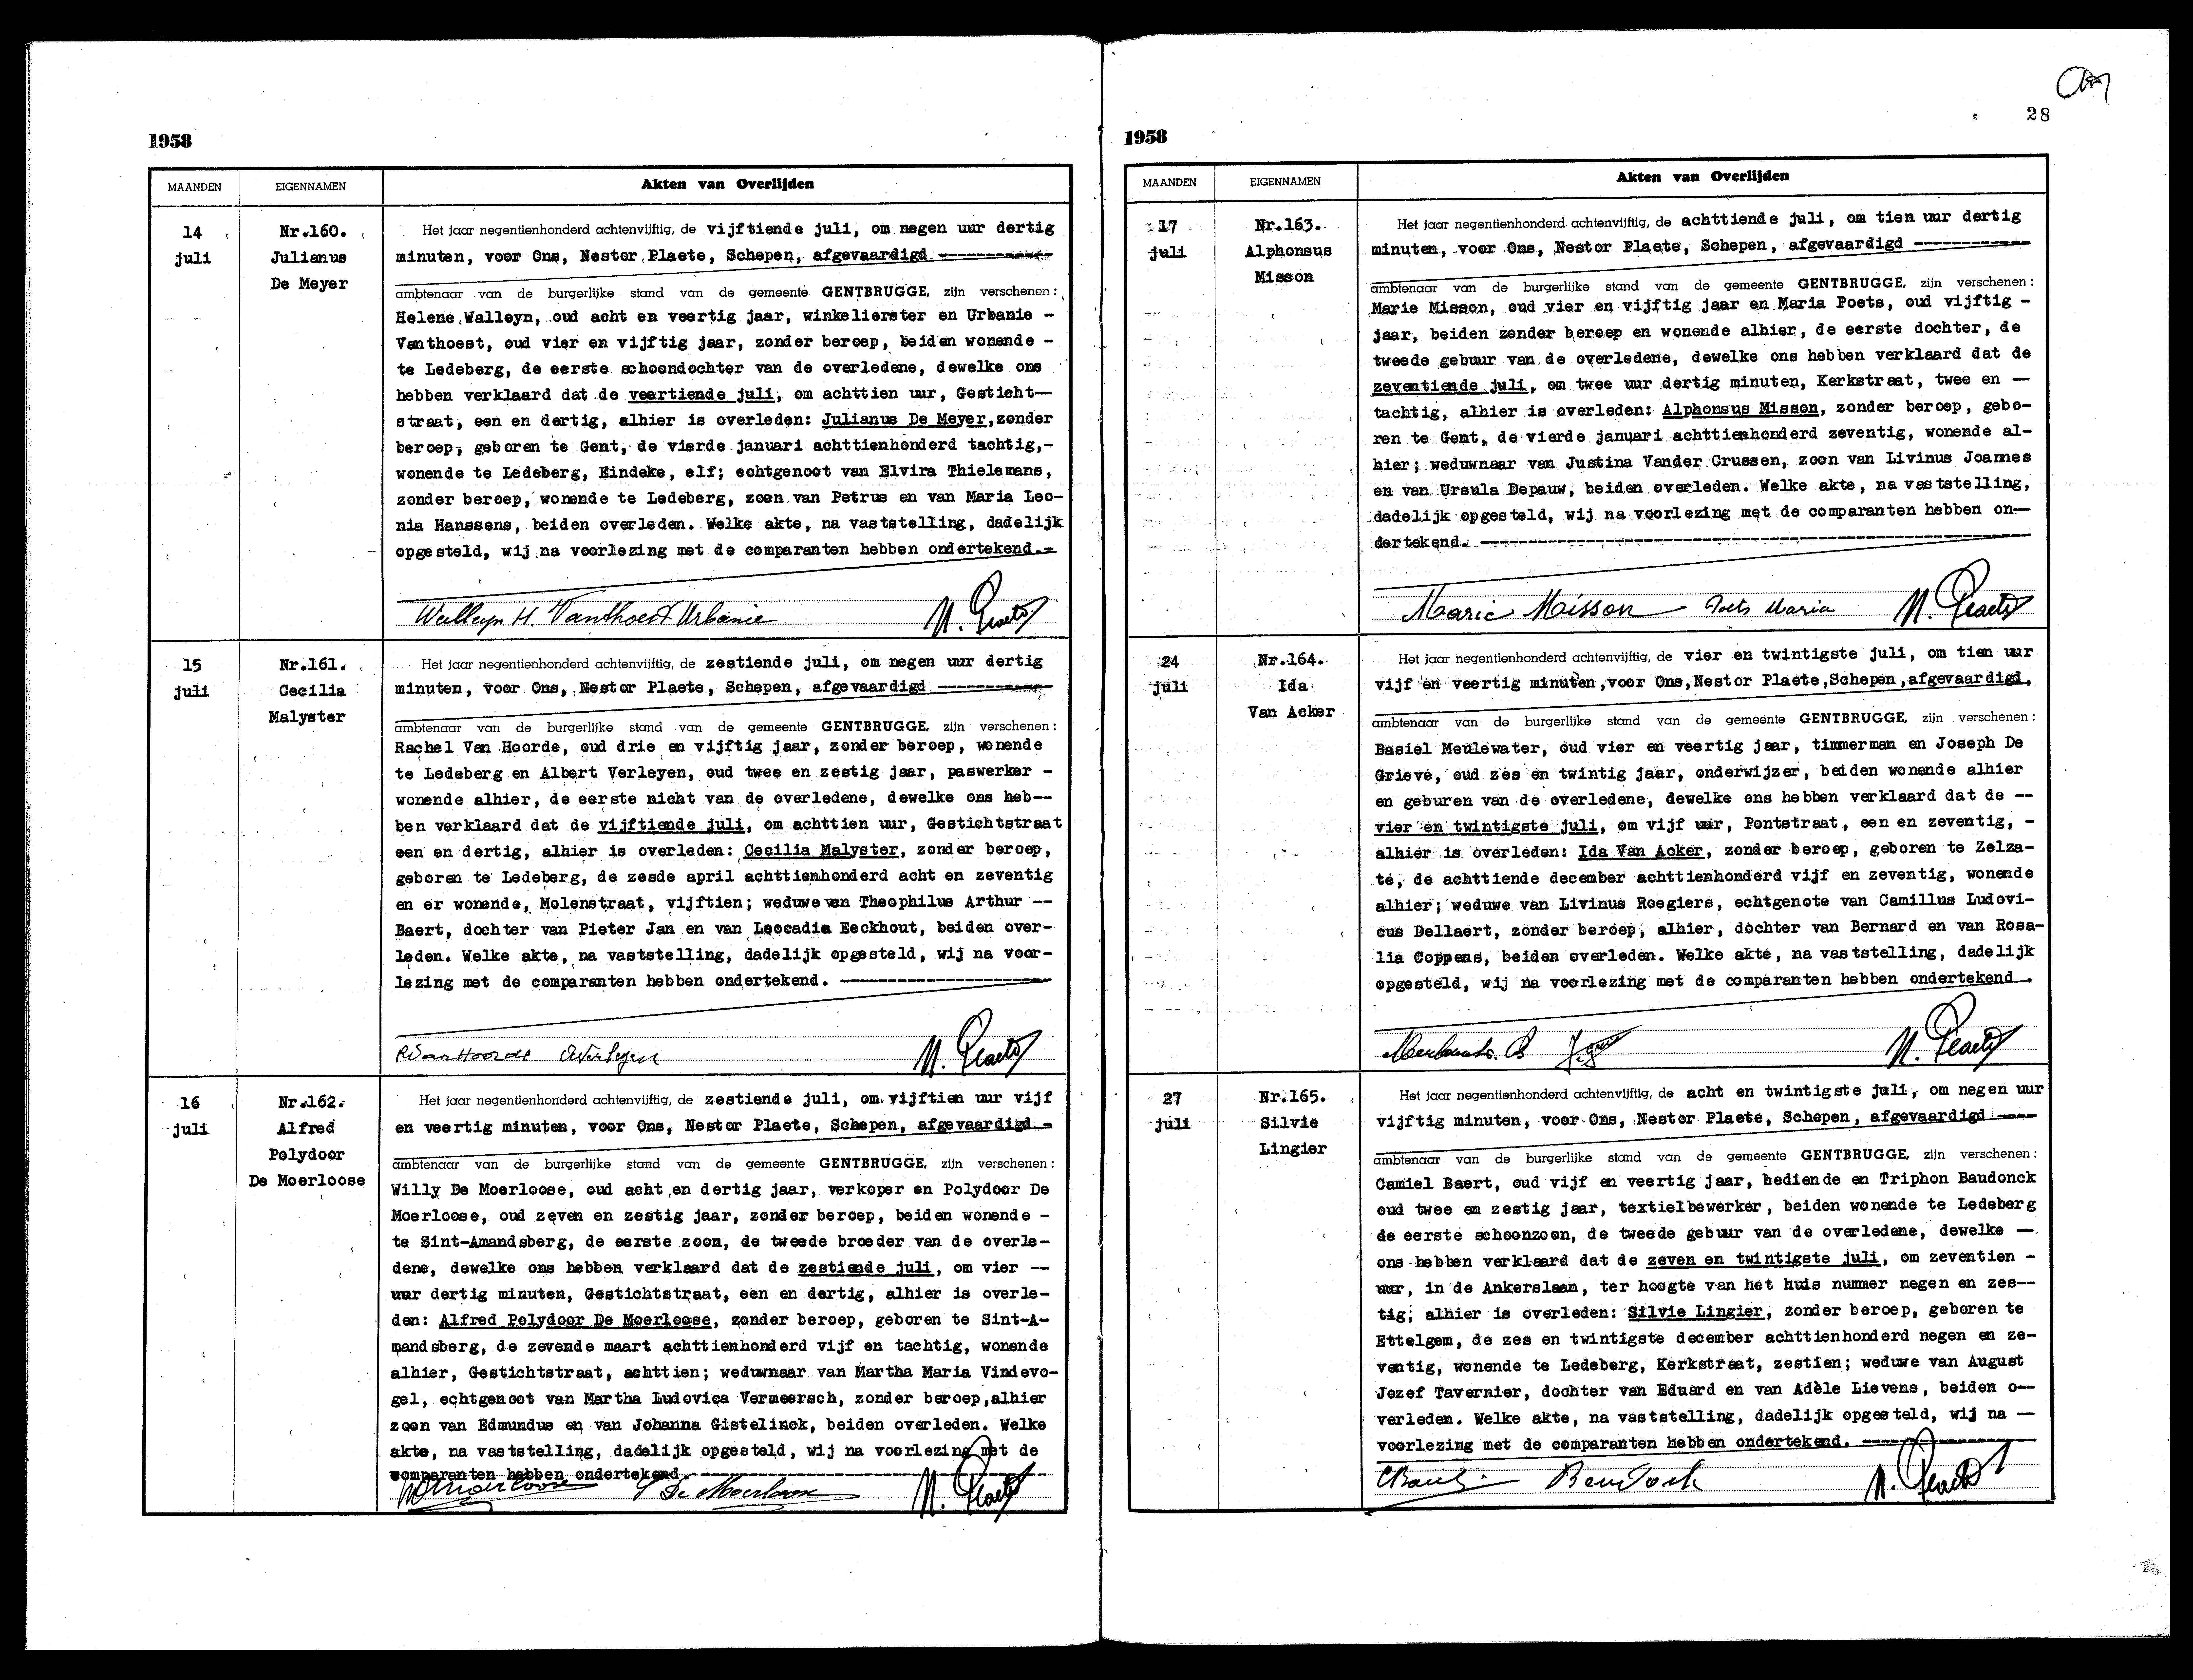 1958
MAANDEN EIGENNAMEN Akten van Overlijden
14
juli
Nr.160.
Julianus
De Meyer
Het jaar negentienhonderd achtenvijftig, de vijftiende juli, om negen uur dertig
minuten, voor Ons, Nestor Plaete, Schepen, afgevaardigd -----------
ambtenaar van de burgerlijke stand van de gemeente GENTBRUGGE, zijn verschenen:
Helene Walleyn, oud acht en veertig jaar, winkelierster en Urbanie -
Vanthoest, oud vier en vijftig jaar, zonder beroep, beiden wonende -
te Ledeberg, de eerste schoondochter van de overledene, dewelke ons
hebben verklaard dat de veertiende juli, om achttien uur, Gesticht--
straat, een en dertig, alhier is overleden: Julianus De Meyer,zonder
beroep, geboren te Gent, de vierde januari achttienhonderd tachtig,-
wonende te Ledeberg, Eindeke, elf; echtgenoot van Elvira Thielemans,
zonder beroep, wonende te Ledeberg, zoon van Petrus en van Maria Leo-
nia Hanssens, beiden overleden. Welke akte, na vaststelling, dadelijk
opgesteld, wij na voorlezing met de comparanten hebben ondertekend.-
Walleyn H. Vanthoest Urbanie N. Plaete
15
juli
Nr.161.
Cecilia
Malyster
Het jaar negentienhonderd achtenvijftig, de zestiende juli, om negen uur dertig
minuten, voor Ons, Nestor Plaete, Schepen, afgevaardigd -----------
ambtenaar van de burgerlijke stand van de gemeente GENTBRUGGE, zijn verschenen:
Rachel Van Hoorde, oud drie en vijftig jaar, zonder beroep, wonende
te Ledeberg en Albert Verleyen, oud twee en zestig jaar, paswerker -
wonende alhier, de eerste nicht van de overledene, dewelke ons heb--
ben verklaard dat de vijftiende juli, om achttien uur, Gestichtstraat
een en dertig, alhier is overleden: Cecilia Malyster, zonder beroep,
geboren te Ledeberg, de zesde april achttienhonderd acht en zeventig
en er wonende, Molenstraat, vijftien; weduwe van Theophilus Arthur --
Baert, dochter van Pieter Jan en van Leocadia Eeckhout, beiden over-
leden. Welke akte, na vaststelling, dadelijk opgesteld, wij na voor-
lezing met de comparanten hebben ondertekend. --------------------
RVanHoorde AVerleyen N. Plaete
16
juli
Nr.162.
Alfred
Polydoor
De Moerloose
Het jaar negentienhonderd achtenvijftig, de zestiende juli, om vijftien uur vijf
en veertig minuten, voor Ons, Nestor Plaete, Schepen, afgevaardigd -
ambtenaar van de burgerlijke stand van de gemeente GENTBRUGGE, zijn verschenen:
Willy De Moerloose, oud acht en dertig jaar, verkoper en Polydoor De
Moerloose, oud zeven en zestig jaar, zonder beroep, beiden wonende -
te Sint-Amandsberg, de eerste zoon, de tweede broeder van de overle-
dene, dewelke ons hebben verklaard dat de zestiende juli, om vier --
uur dertig minuten, Gestichtstraat, een en dertig, alhier is overle-
den: Alfred Polydoor De Moerloose, zonder beroep, geboren te Sint-A-
mandsberg, de zevende maart achttienhonderd vijf en tachtig, wonende
alhier, Gestichtstraat, achttien; weduwnaar van Martha Maria Vindevo-
gel, echtgenoot van Martha Ludovica Vermeersch, zonder beroep,alhier
zoon van Edmundus en van Johanna Gistelinck, beiden overleden. Welke
akte, na vaststelling, dadelijk opgesteld, wij na voorlezing met de
comparanten hebben ondertekend.--------------------
De Moerloose N. Plaete
28
1958
MAANDEN EIGENNAMEN Akten van Overlijden
17
juli
Nr.163.
Alphonsus
Misson
Het jaar negentienhonderd achtenvijftig, de achttiende juli, om tien uur dertig
minuten, voor Ons, Nestor Plaete, Schepen, afgevaardigd -----------
ambtenaar van de burgerlijke stand van de gemeente GENTBRUGGE, zijn verschenen:
Marie Misson, oud vier en vijftig jaar en Maria Poets, oud vijftig -
jaar, beiden zonder beroep en wonende alhier, de eerste dochter, de
tweede gebuur van de overledene, dewelke ons hebben verklaard dat de
zeventiende juli, om twee uur dertig minuten, Kerkstraat, twee en --
tachtig, alhier is overleden: Alphonsus Misson, zonder beroep, gebo-
ren te Gent, de vierde januari achttienhonderd zeventig, wonende al-
hier; weduwnaar van Justina Vander Crussen, zoon van Livinus Joannes
en van Ursula Depauw, beiden overleden. Welke akte, na vaststelling,
dadelijk opgesteld, wij na voorlezing met de comparanten hebben on--
dertekend. --------------------
Marie Misson Poets Maria N. Plaete
24
juli
Nr.164.
Ida
Van Acker
Het jaar negentienhonderd achtenvijftig, de vier en twintigste juli, om tien uur
vijf en veertig minuten,voor Ons,Nestor Plaete,Schepen,afgevaardigd,
ambtenaar van de burgerlijke stand van de gemeente GENTBRUGGE, zijn verschenen:
Basiel Meulewater, oud vier en veertig jaar, timmerman en Joseph De
Grieve, oud zes en twintig jaar, onderwijzer, beiden wonende alhier
en geburen van de overledene, dewelke ons hebben verklaard dat de --
vier en twintigste juli, om vijf uur, Pontstraat, een en zeventig, -
alhier is overleden: Ida Van Acker, zonder beroep, geboren te Zelza-
te, de achttiende december achttienhonderd vijf en zeventig, wonende
alhier; weduwe van Livinus Roegiers, echtgenote van Camillus Ludovi-
cus Dellaert, zonder beroep, alhier, dochter van Bernard en van Rosa-
lia Coppens, beiden overleden. Welke akte, na vaststelling, dadelijk
opgesteld, wij na voorlezing met de comparanten hebben ondertekend.
N. Plaete
27
juli
Nr.165.
Silvie
Lingier
Het jaar negentienhonderd achtenvijftig, de acht en twintigste juli, om negen uur
vijftig minuten, voor Ons, Nestor Plaete, Schepen, afgevaardigd ----
ambtenaar van de burgerlijke stand van de gemeente GENTBRUGGE, zijn verschenen:
Camiel Baert, oud vijf en veertig jaar, bediende en Triphon Baudonck
oud twee en zestig jaar, textielbewerker, beiden wonende te Ledeberg
de eerste schoonzoon, de tweede gebuur van de overledene, dewelke --
ons hebben verklaard dat de zeven en twintigste juli, om zeventien -
uur, in de Ankerslaan, ter hoogte van het huis nummer negen en zes--
tig; alhier is overleden: Silvie Lingier, zonder beroep, geboren te
Ettelgem, de zes en twintigste december achttienhonderd negen en ze-
ventig, wonende te Ledeberg, Kerkstraat, zestien; weduwe van August
Jozef Tavernier, dochter van Eduard en van Adèle Lievens, beiden o--
verleden. Welke akte, na vaststelling, dadelijk opgesteld, wij na --
voorlezing met de comparanten hebben ondertekend. ----------
N. Plaete